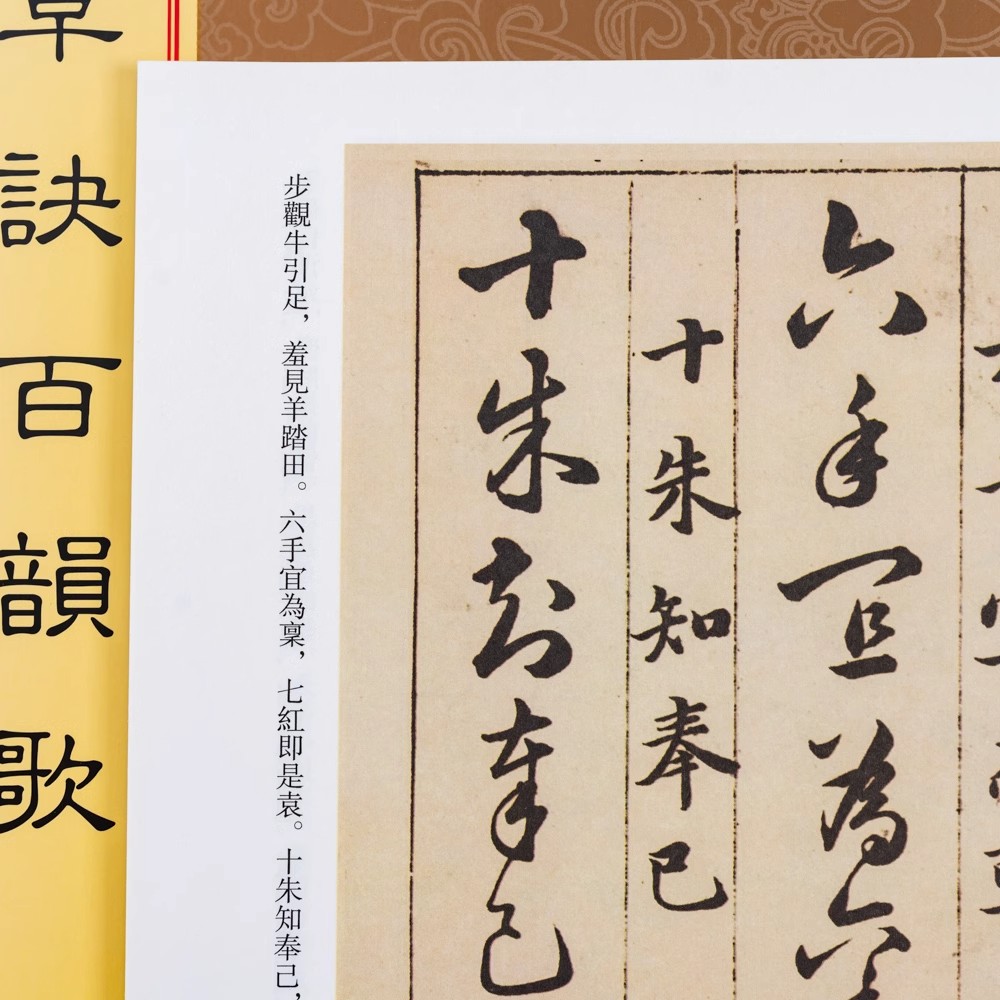 六手宜為
十朱知奉已
十朱知奉己
步觀牛引足，羞見羊踏田。六手宜為稟，七紅即是袁。十朱知奉己，
草訣百韻歌